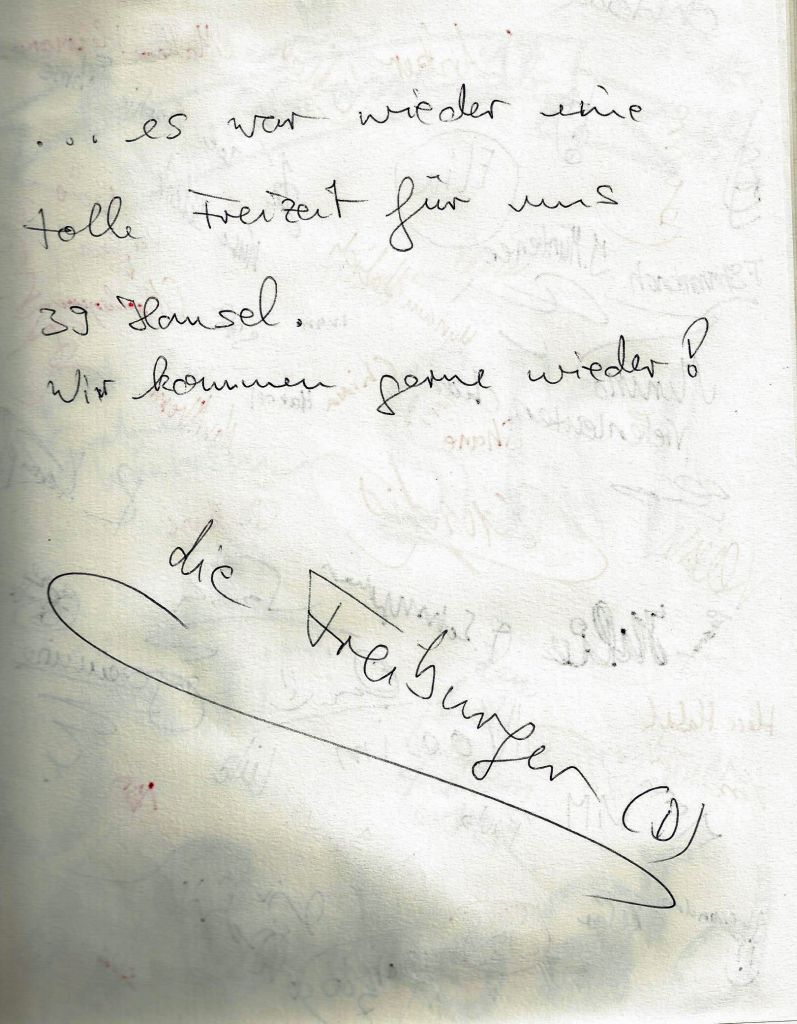 ... es war wieder eine
tolle Freizeit für uns
39 Hansel.
Wir kommen gerne wieder!
die Freiburger (D)